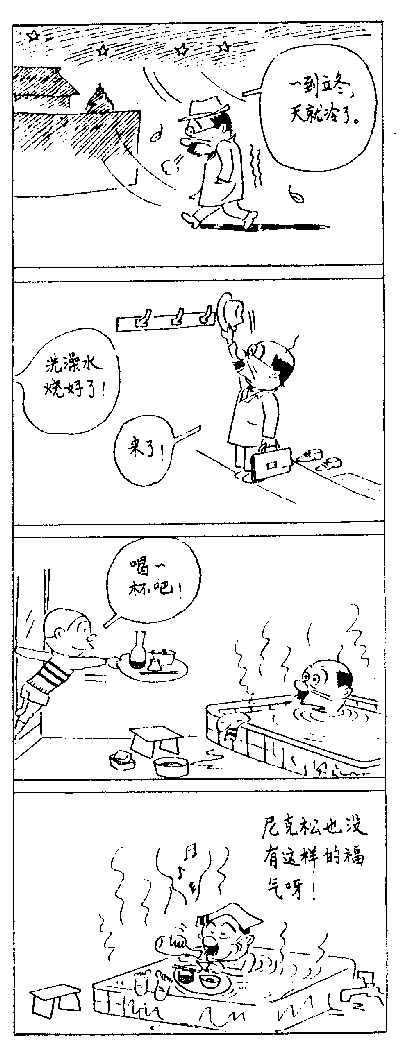 一到立冬，
天就冷了。
洗澡水
烧好了！
来了！
喝一
杯吧！
尼克松也没
有这样的福
气呀！